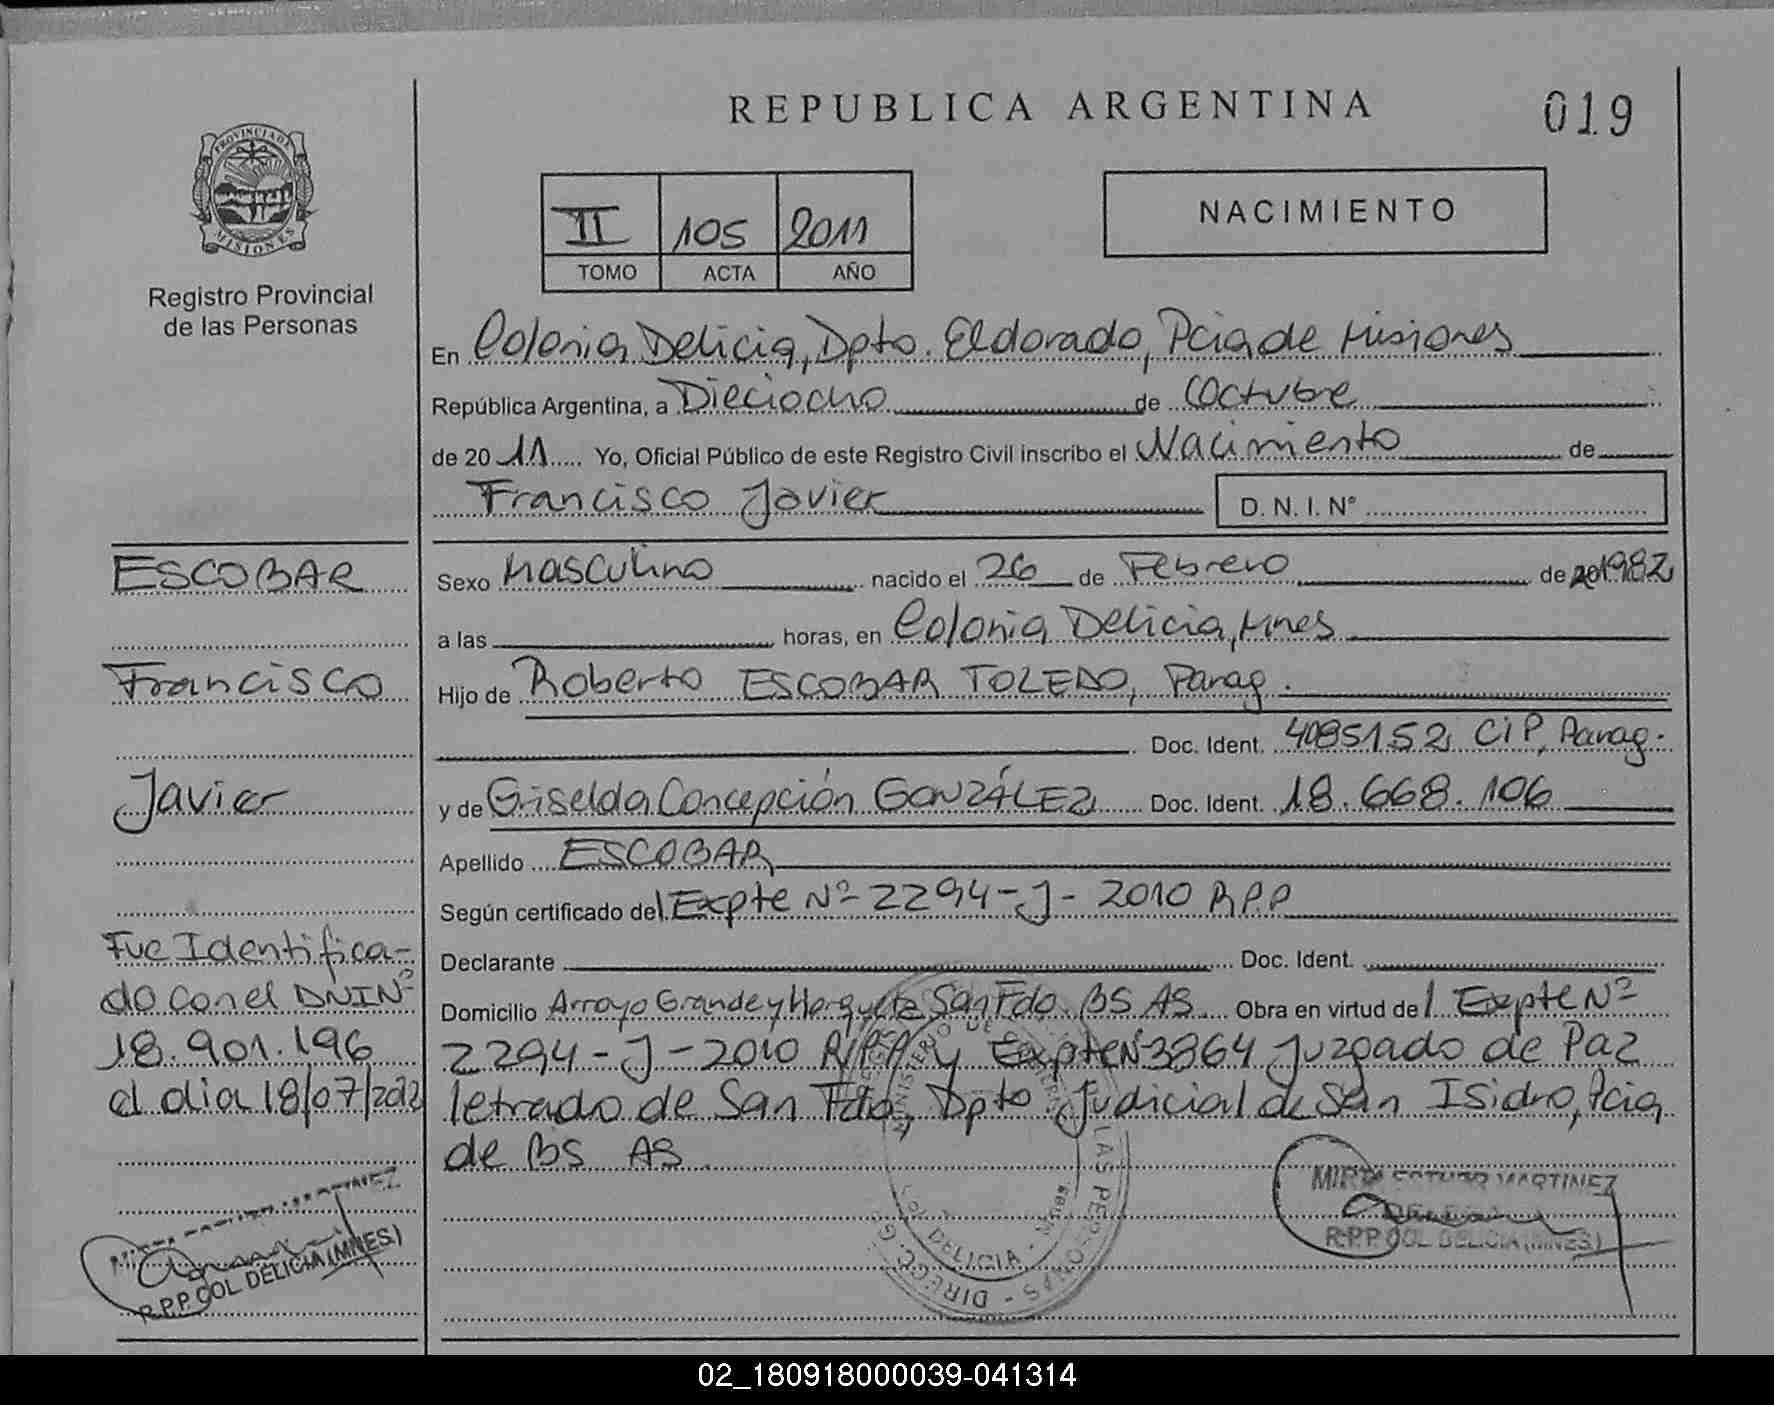 REPUBLICA ARGENTINA
019
PROVINCIA DE
MISIONES
Registro Provincial
de las Personas
II 105 2011
TOMO ACTA AÑO
NACIMIENTO
En Colonia Delicia, Dpto. Eldorado, Pcia de Misiones
República Argentina, a Dieciocho de Octubre
de 2011 Yo, Oficial Público de este Registro Civil inscribo el Nacimiento de
Francisco Javier D. N. I. Nº
Sexo Masculino nacido el 26 de Febrero de 1982
a las horas, en Colonia Delicia, Mnes
Hijo de Roberto ESCOBAR TOLEDO, Parag.
Doc. Ident. 4085152 CIP, Parag.
y de Griselda Concepción GONZÁLEZ Doc. Ident. 18.668.106
Apellido ESCOBAR
Según certificado del Expte Nº 2294-J-2010 R.P.P
Declarante Doc. Ident.
Domicilio Arroyo Grande y Horqueta San Fdo. BS AS Obra en virtud del Expte Nº
2294-J-2010 R.P.P. y Expte Nº 3864 Juzgado de Paz
letrado de San Fdo, Dpto Judicial de San Isidro, Pcia
de BS AS
ESCOBAR
Francisco
Javier
Fue Identifica-
do con el DNI Nº
18.901.196
el dia 18/07/2012
MARTINEZ
R.P.P. COL DELICIA (MNES.)
MARTINEZ
R.P.P. COL DELICIA (MNES)
MINISTERIO DE
DELICIA
02_180918000039-041314